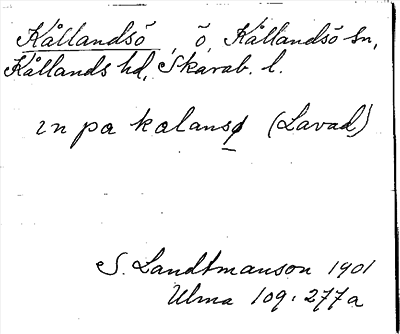 Kållandsö, ö, Kållandsö sn,
Kållands hd, Skarab. l.
ın pa kalansø (Lavad)
S. Landtmanson 1901
Ulma 109:277a